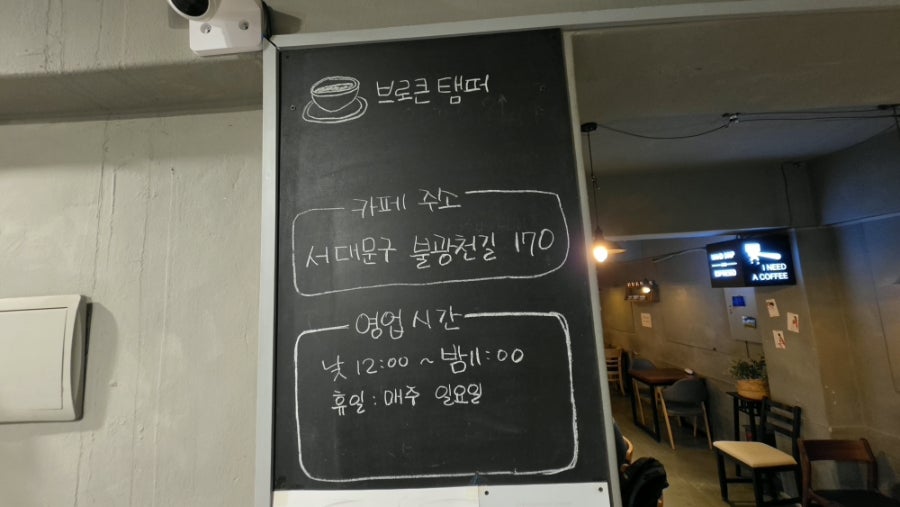 브로큰 탬퍼
카페 주소
서대문구 불광천길 170
영업시간
낮 12:00 ~ 밤 11:00
휴일 : 매주 일요일
I NEED
A COFFEE